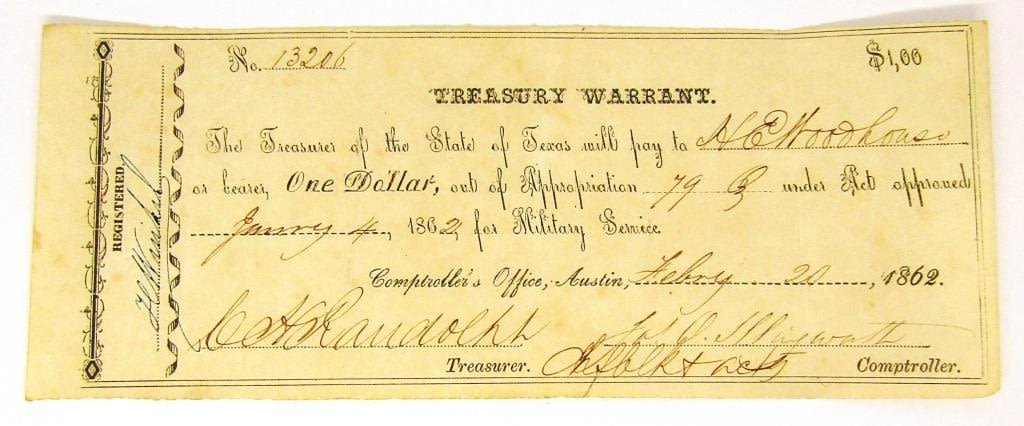 No. 13206
$1,00
TREASURY WARRANT.
The Treasurer of the State of Texas will pay to H E Woodhouse
or bearer, One Dollar, out of Appropriation 79 under Act approved
Janry 4, 1862, for Military Service.
Comptroller's Office, Austin, Febry 20, 1862.
C H Randolph
Treasurer.
Comptroller.
REGISTERED